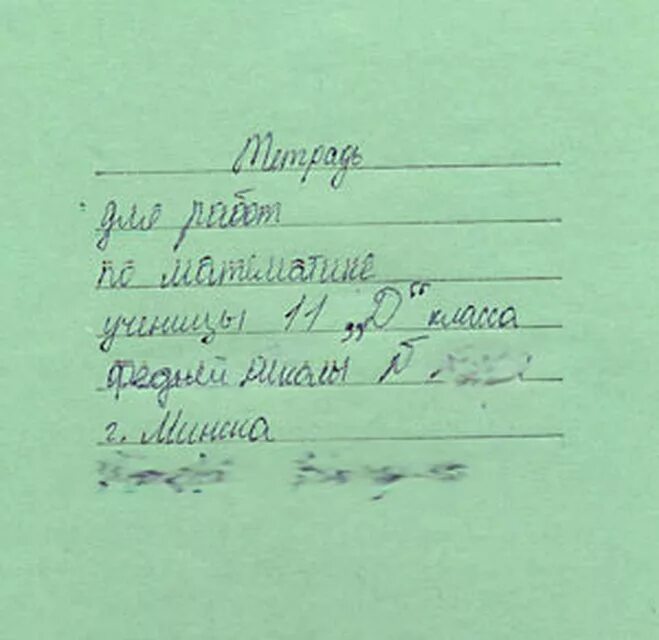 Тетрадь
для работ
по математике
ученицы 11 „D“ класса
средней школы №
г. Минска